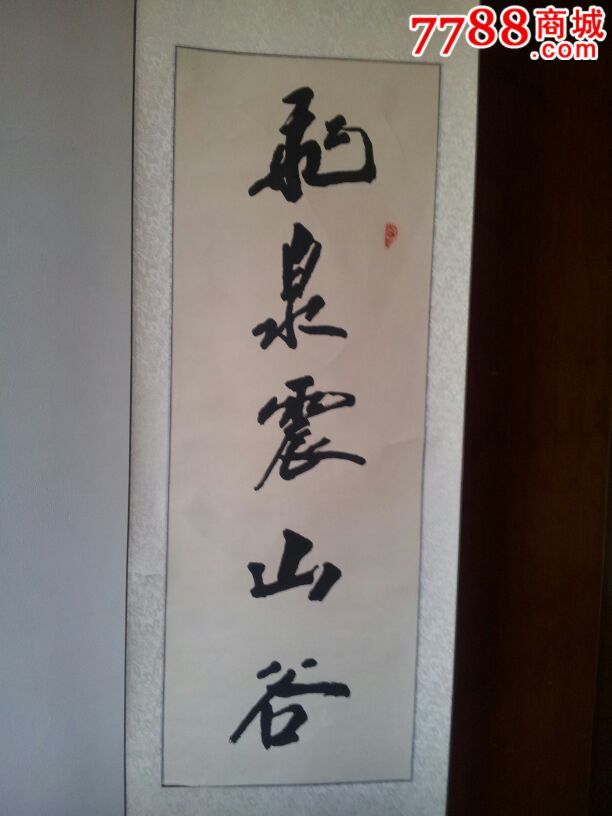 7788商城
.com
飛泉震山谷